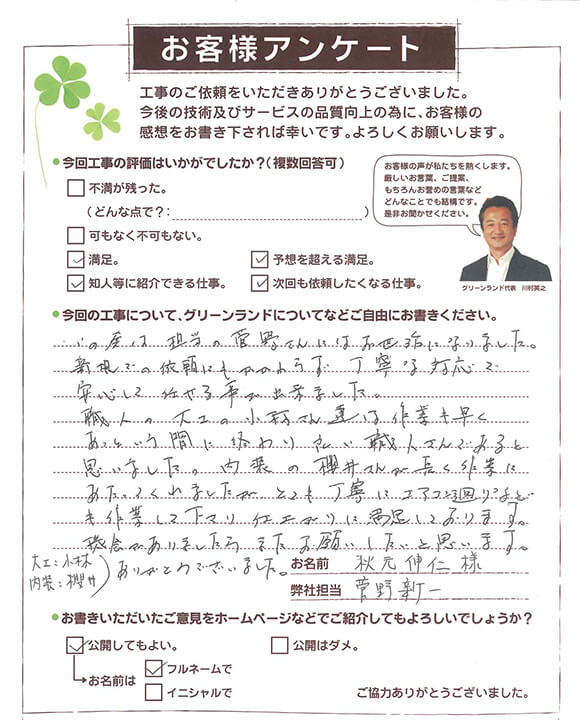 お客様アンケート
工事のご依頼をいただきありがとうございました。
今後の技術及びサービスの品質向上の為に、お客様の
感想をお書き下されば幸いです。よろしくお願いします。
今回工事の評価はいかがでしたか?(複数回答可)
不満が残った。
(どんな点で?: )
可もなく不可もない。
満足。
予想を超える満足。
知人等に紹介できる仕事。
次回も依頼したくなる仕事。
お客様の声が私たちを熱くします。
厳しいお言葉、ご提案、
もちろんお誉めの言葉など
どんなことでも結構です。
是非お聞かせください。
グリーンランド代表 川村英之
今回の工事について、グリーンランドについてなどご自由にお書きください。
この度は担当の菅野さんにはお世話になりました。
新規での依頼にもかかわらず丁寧な対応で
安心して任せる事が出来ました。
職人の大工の小林さん達は作業も早く
あっという間に終わり 職人さんであると
思いました。内装の櫻井さんが長く作業に
あたってくれましたが、とても丁寧にエアコン廻りなど
も作業して下さり仕上がりに満足しております。
機会がありましたらまたお願いしたいと思います。
ありがとうございました。
大工:小林
内装:櫻井
お名前 秋元伸仁様
弊社担当 菅野新一
お書きいただいたご意見をホームページなどでご紹介してもよろしいでしょうか?
公開してもよい。
公開はダメ。
お名前は
フルネームで
イニシャルで
ご協力ありがとうございました。